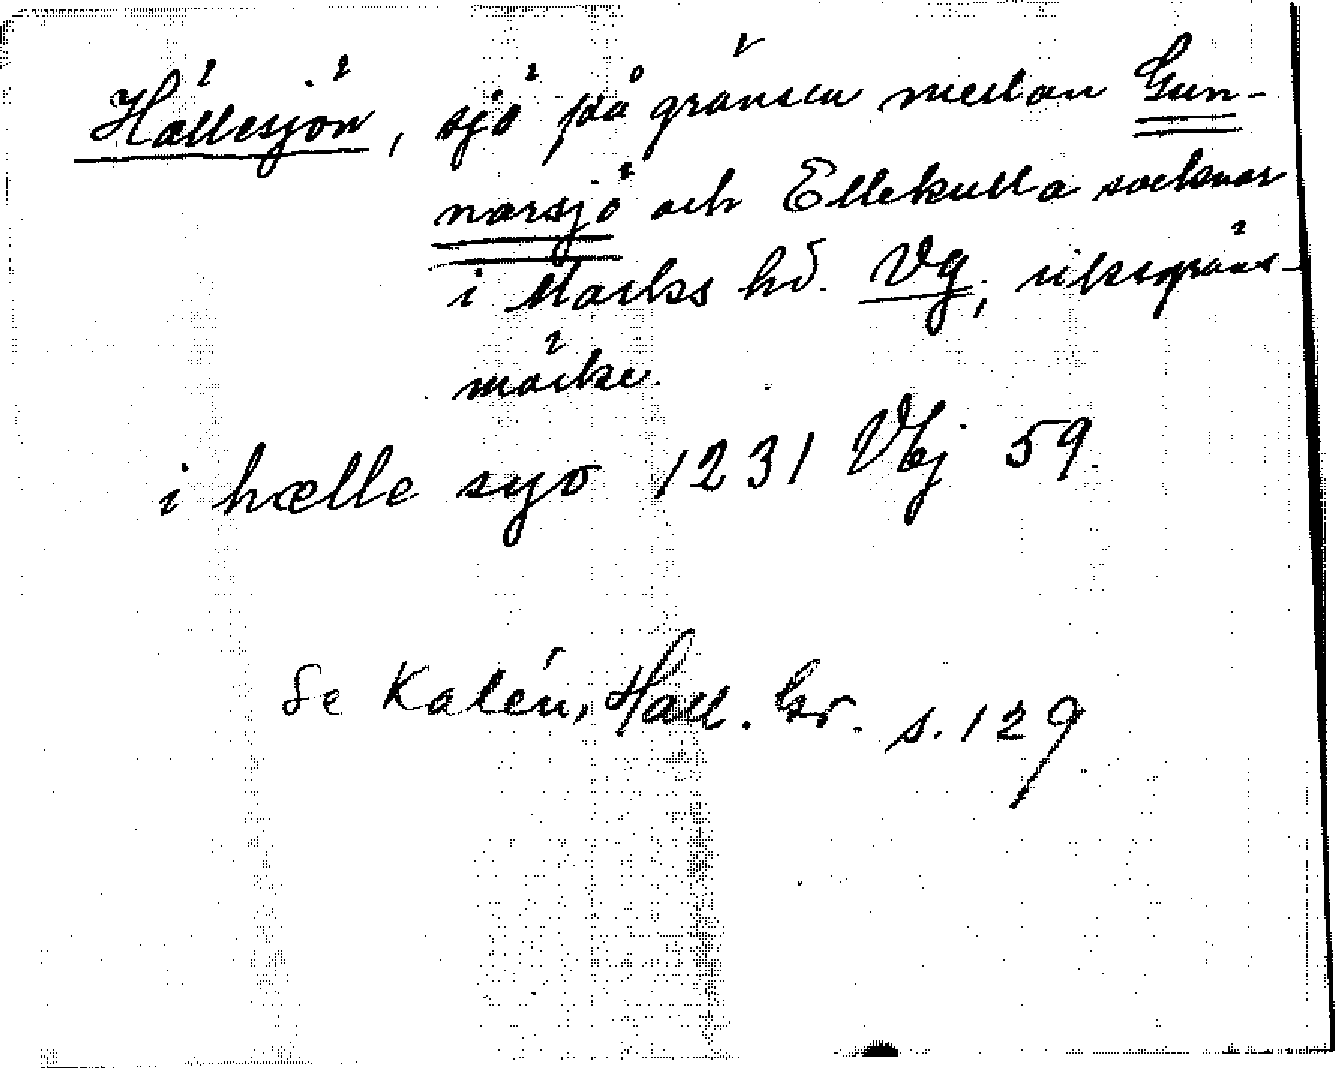 Hällesjön, sjö på gränsen mellan Gun-
narsjö och Ellekulla socknar
i Marks hd. Vg, riksgräns-
märke.
i hælle syo 1231 VBj 59
Se Kalén, Hall. Gr. s. 129